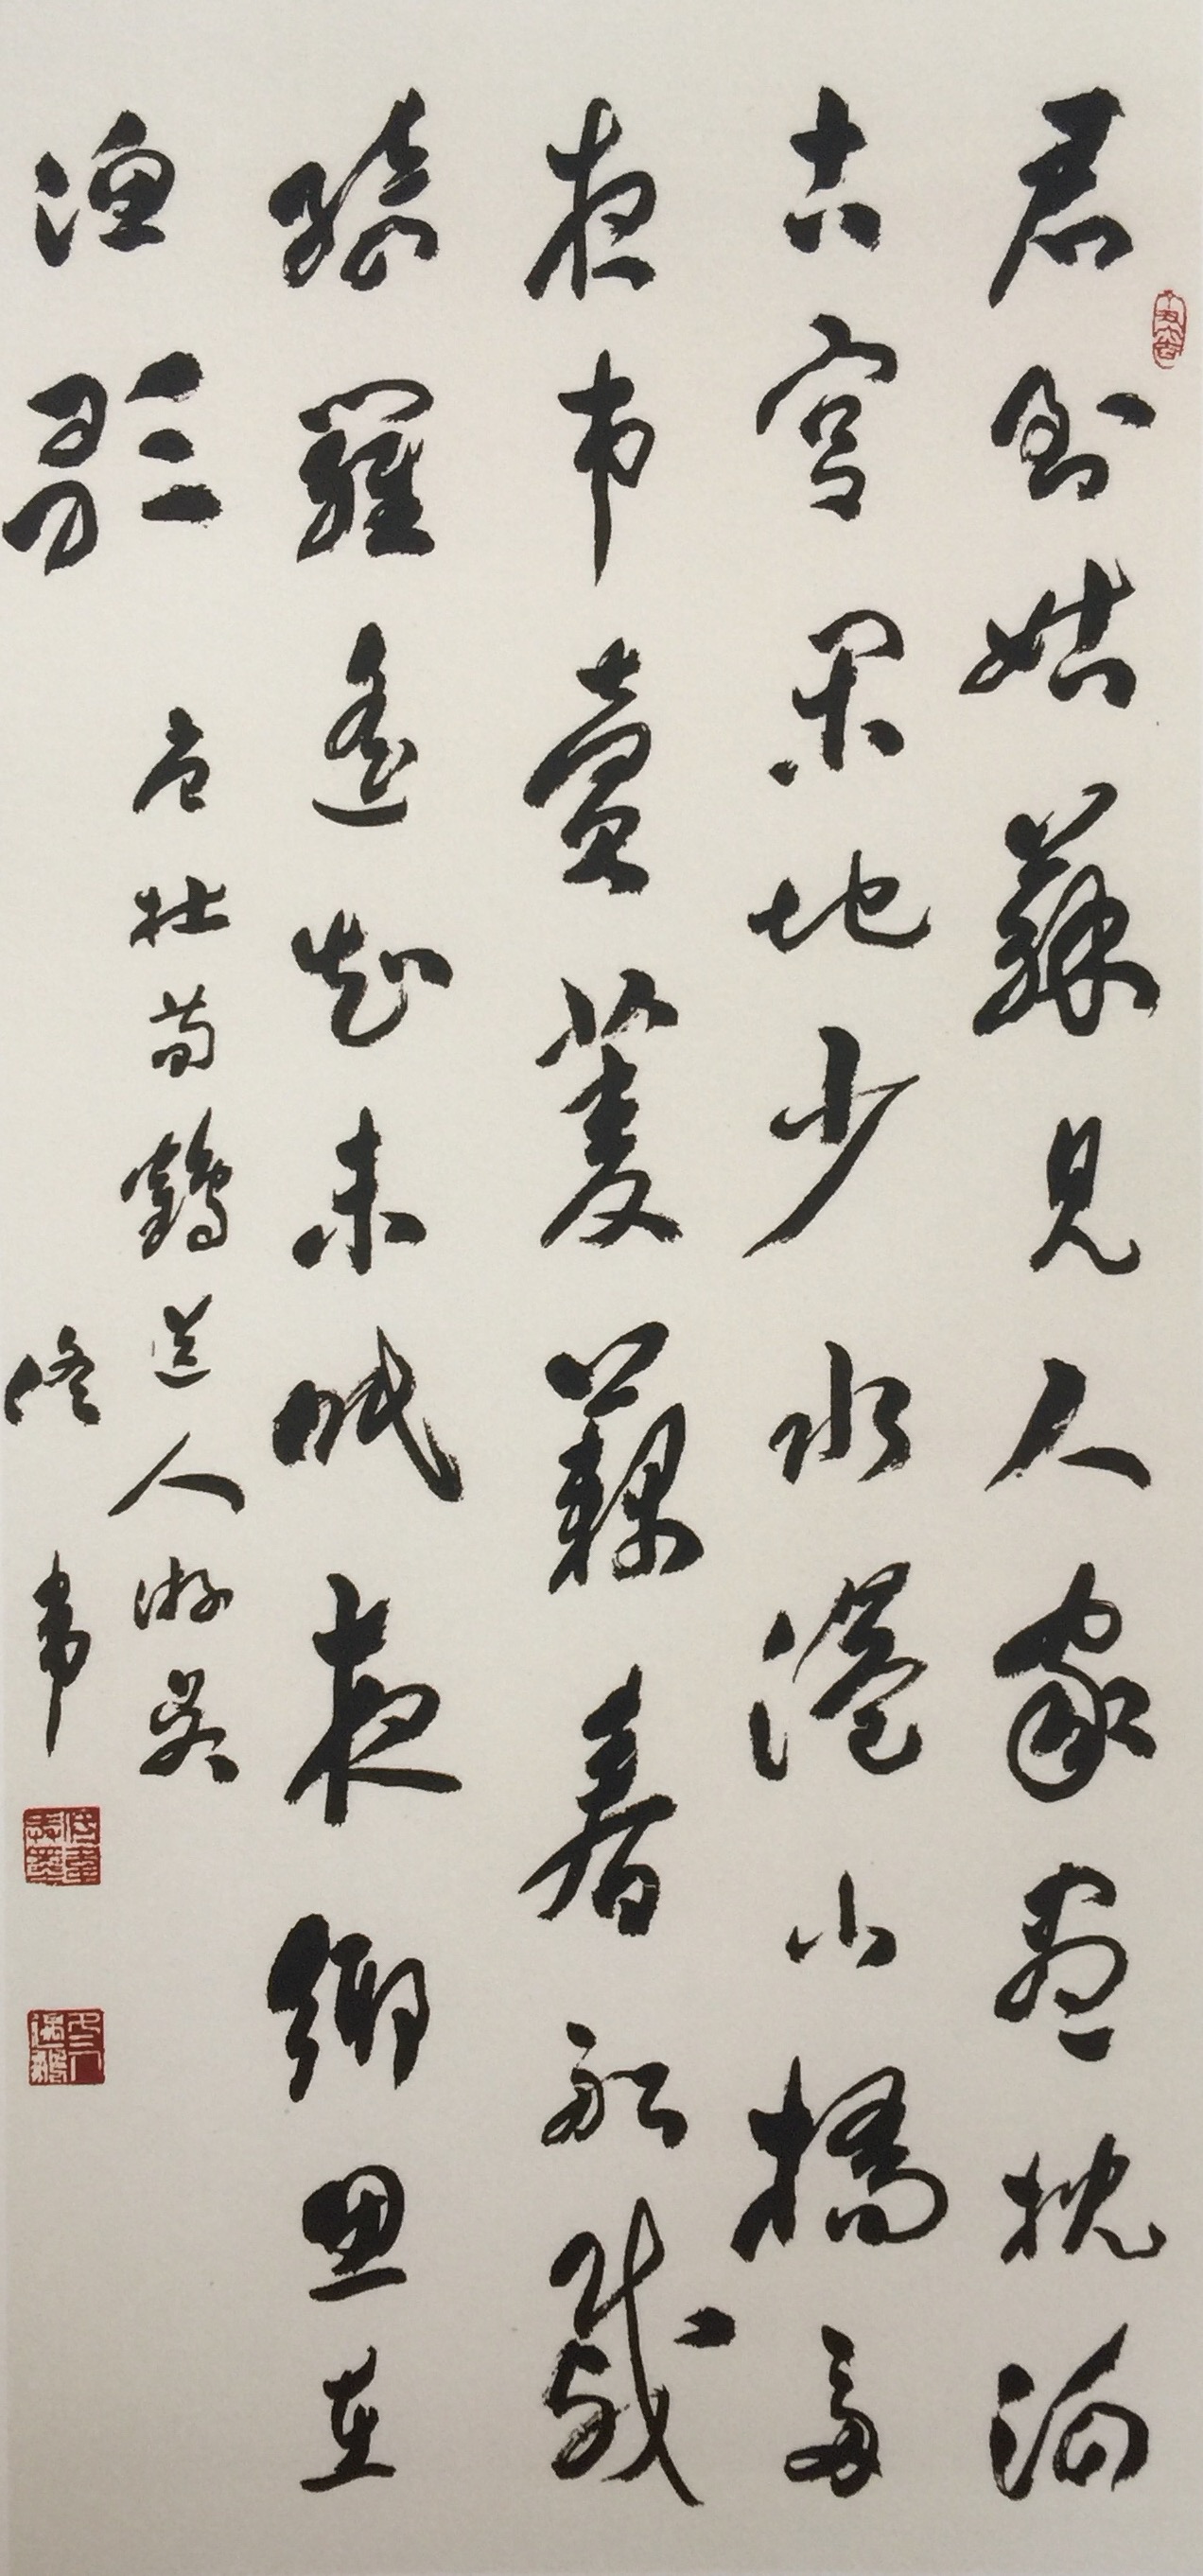 君到姑蘇見人家盡枕河
古宮閑地少水港小橋多
夜市賣菱藕春船載
綺羅遙知未眠夜鄉思在
漁歌
唐杜荀鶴送人游吳
佟韋